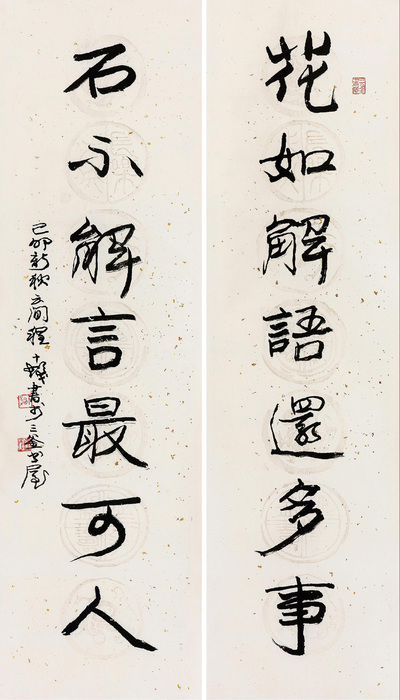 花如解語還多事
石不解言最可人
己卯新秋云间程十髮書於三釜書屋